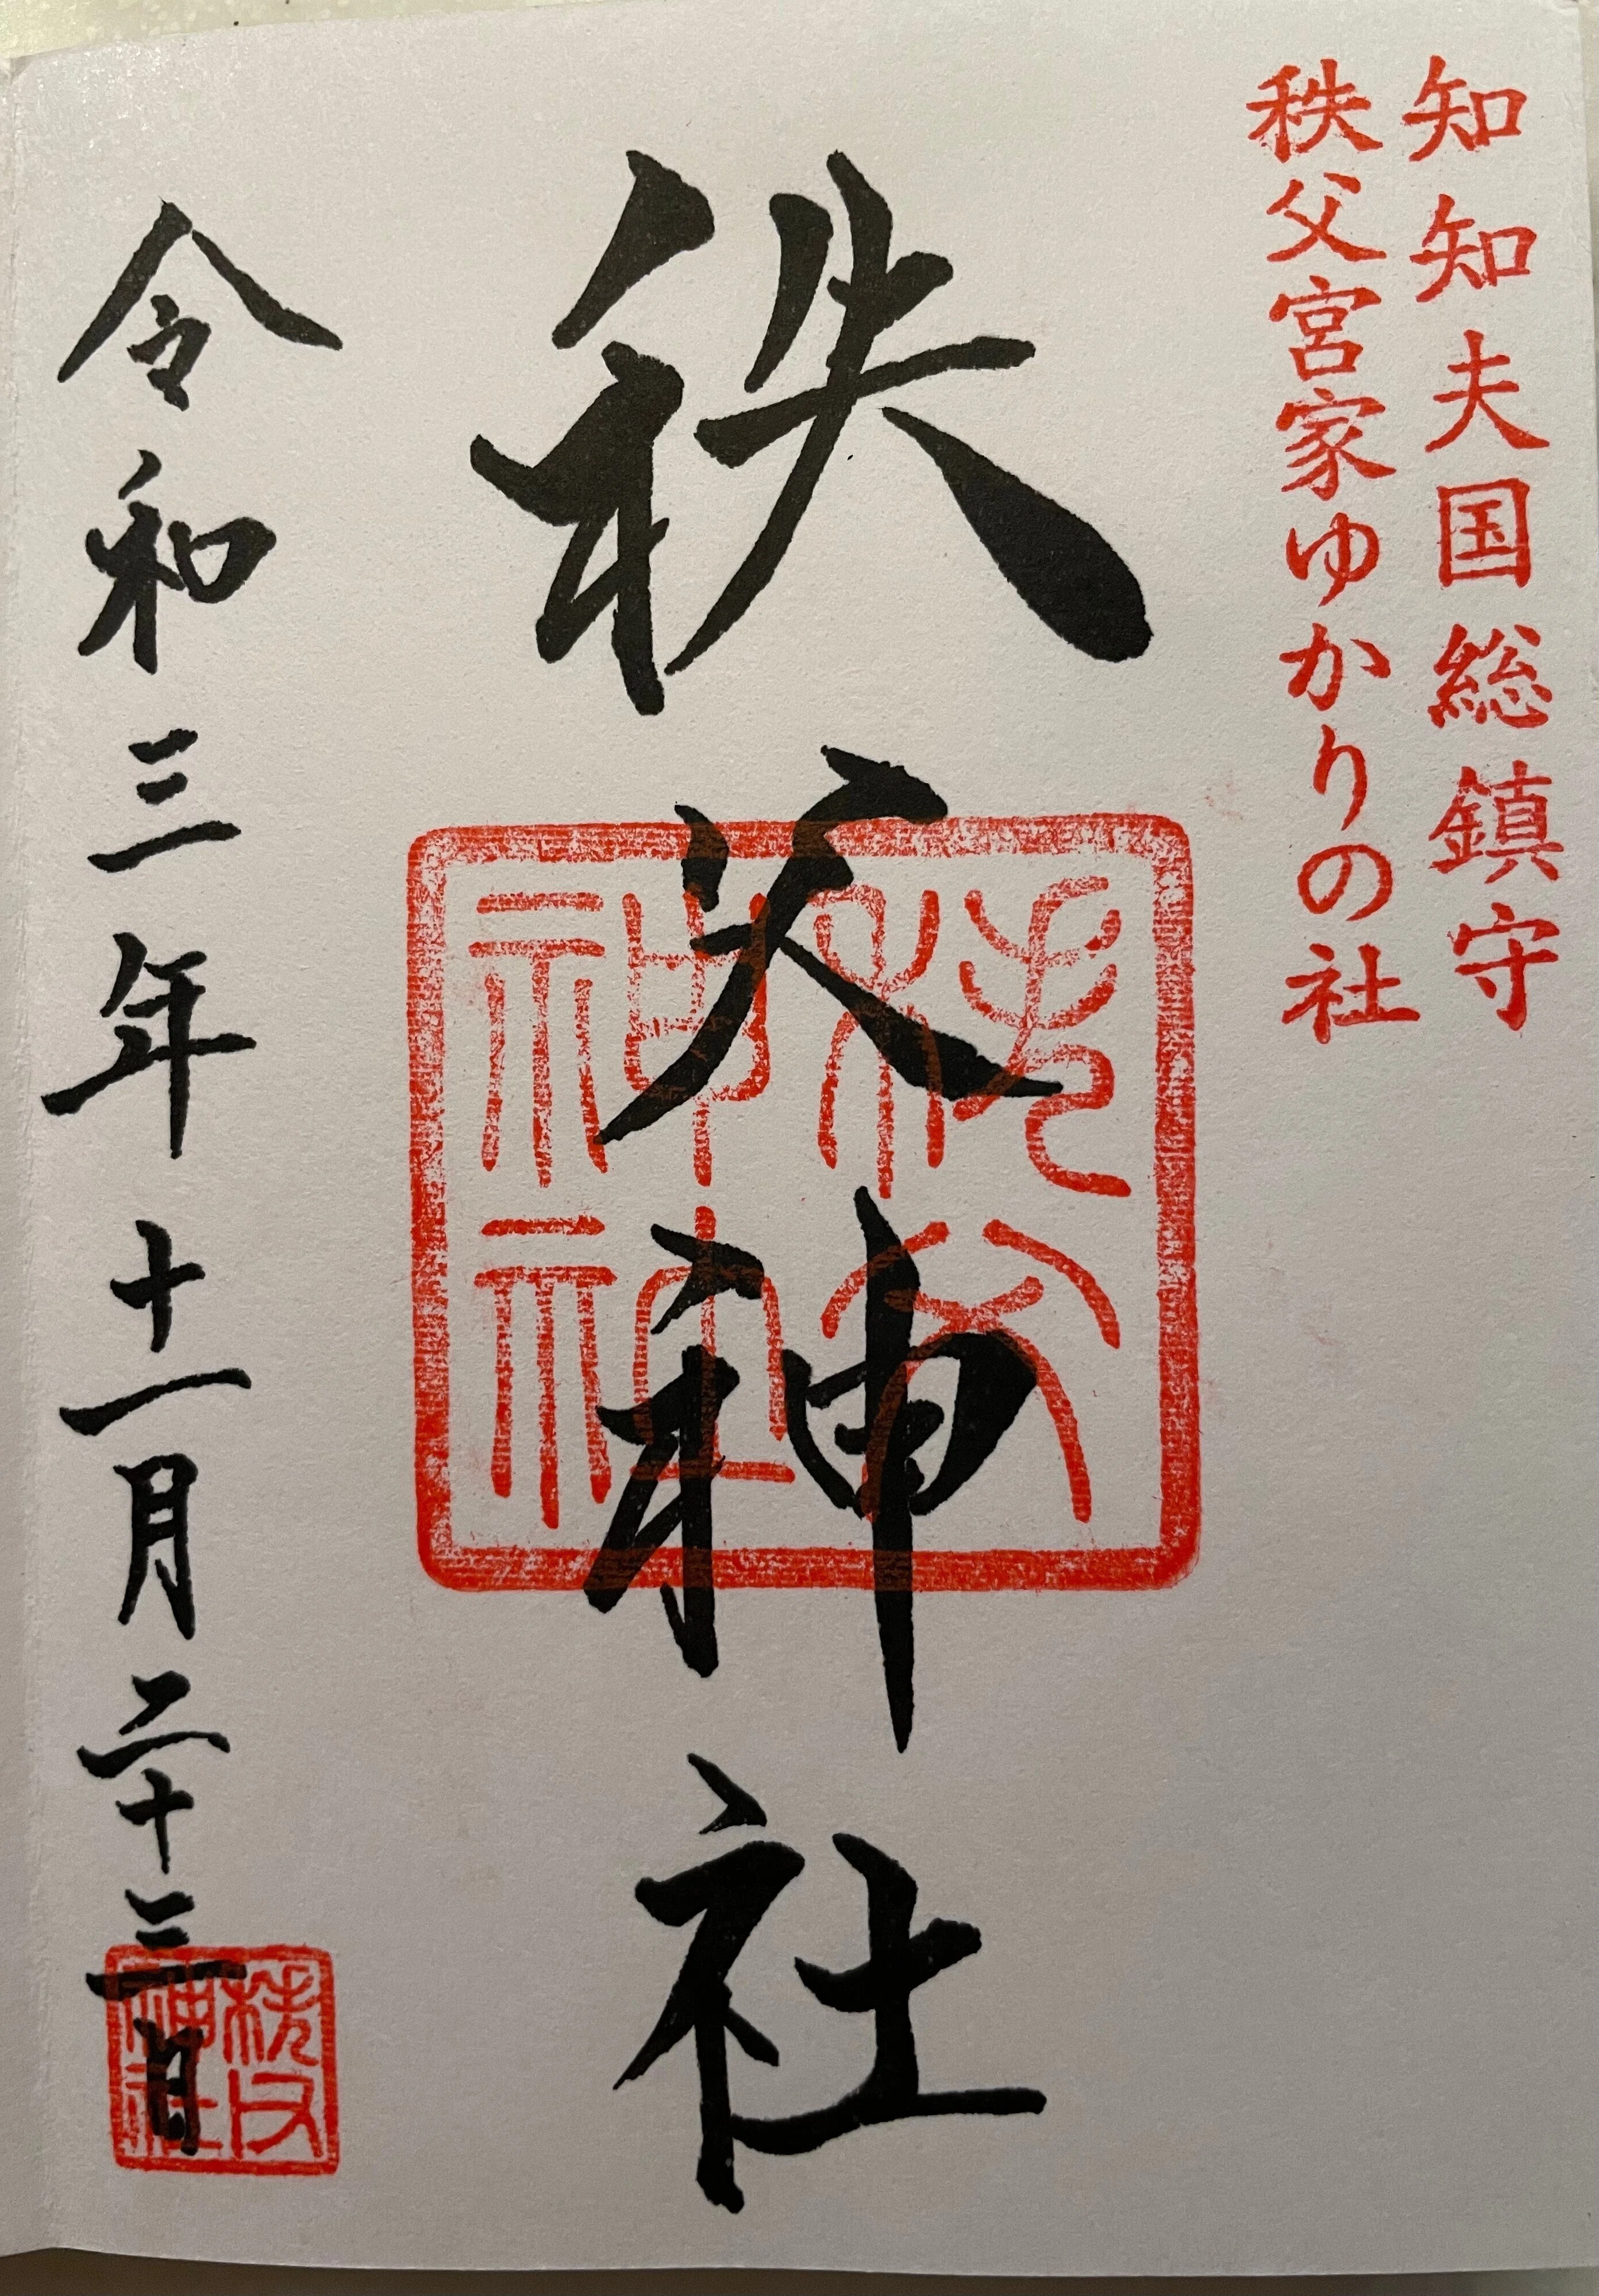 知知夫国総鎮守
秩父宮家ゆかりの社
秩父神社
秩父神社
令和三年十一月二十三日
秩父神社